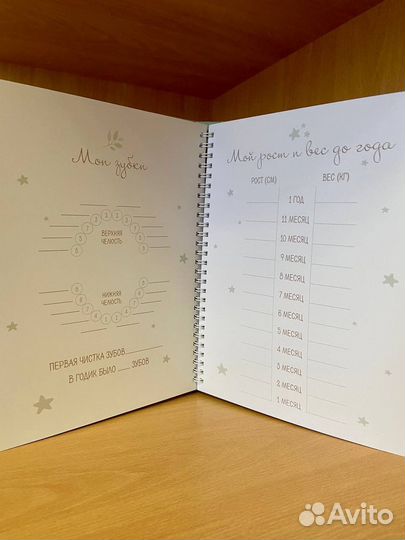 Мои зубки
ВЕРХНЯЯ
ЧЕЛЮСТЬ
НИЖНЯЯ
ЧЕЛЮСТЬ
ПЕРВАЯ ЧИСТКА ЗУБОВ
В ГОДИК БЫЛО ЗУБОВ
Мой рост и вес до года
РОСТ (СМ) ВЕС (КГ)
1 ГОД
11 МЕСЯЦ
10 МЕСЯЦ
9 МЕСЯЦ
8 МЕСЯЦ
7 МЕСЯЦ
6 МЕСЯЦ
5 МЕСЯЦ
4 МЕСЯЦ
3 МЕСЯЦ
2 МЕСЯЦ
1 МЕСЯЦ
Avito